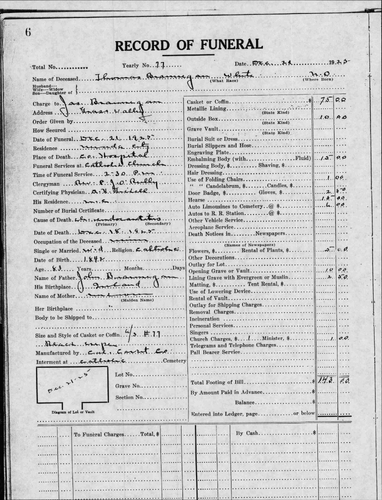 6
RECORD OF FUNERAL
Total No. Yearly No. 77 Date Dec. 21 1925
Name of Deceased Thomas Brannagan White N.O
(What Race) (Where Born)
Husband—
Wife—Widow
Son—Daughter of
Charge to Jas. Brannagan
Address Grass Valley
Order Given by
How Secured
Date of Funeral Dec. 21, 1925
Residence Nevada City
Place of Death Co. Hospital
Funeral Services at Catholic Church
Time of Funeral Service 2:30 P.M.
Clergyman Rev. P. J. O'Reilly
Certifying Physician
His Residence N.C.
Number of Burial Certificate
Cause of Death Ch.
(Primary) (Secondary)
Date of Death Dec. 18 1925
Occupation of the Deceased miner
Single or Married Wd Religion Catholic
Date of Birth 1842
Age 83 Years Months Days
Name of Father John Brannagan
His Birthplace Ireland
Name of Mother
(Maiden Name)
Her Birthplace "
Body to be Shipped to
Size and Style of Casket or Coffin 6/3 #77
Black
Manufactured by Cal. Casket Co
Interment at Catholic Cemetery
Lot No.
Grave No.
Section No.
Dec 21-25
Diagram of Lot or Vault
Casket or Coffin $ 75 00
Metallic Lining
(State Kind)
Outside Box 10 00
(State Kind)
Grave Vault
(State Kind)
Burial Suit or Dress
Burial Slippers and Hose
Engraving Plate
Embalming Body (with Fluid) 15 00
Dressing Body, $ Shaving, $
Hair Dressing
Use of Folding Chairs 1 00
" " Candelabrum, $ Candles, $
Door Badge, $ Gloves, $ 2 50
Hearse
Auto Limousines to Cemetery @ $
Autos to R. R. Station @ $
Other Vehicle Service
Aeroplane Service
Death Notices in Newspapers
(Names of Newspapers)
Flowers, $ Rental of Plants, $ 5 00
Other Decorations
Outlay for Lot
Opening Grave or Vault 10 00
Lining Grave with Evergreen or Muslin 2 50
Matting, $ Tent Rental, $
Use of Lowering Device
Rental of Vault
Outlay for Shipping Charges
Removal Charges
Incineration
Personal Services
Singers
Church Charges, $ / Minister, $ 1 00
Telegrams and Telephone Charges
Pall Bearer Service
Total Footing of Bill $
By Amount Paid in Advance
Balance
Entered into Ledger, page or below
To Funeral Charges Total, $ By Cash $